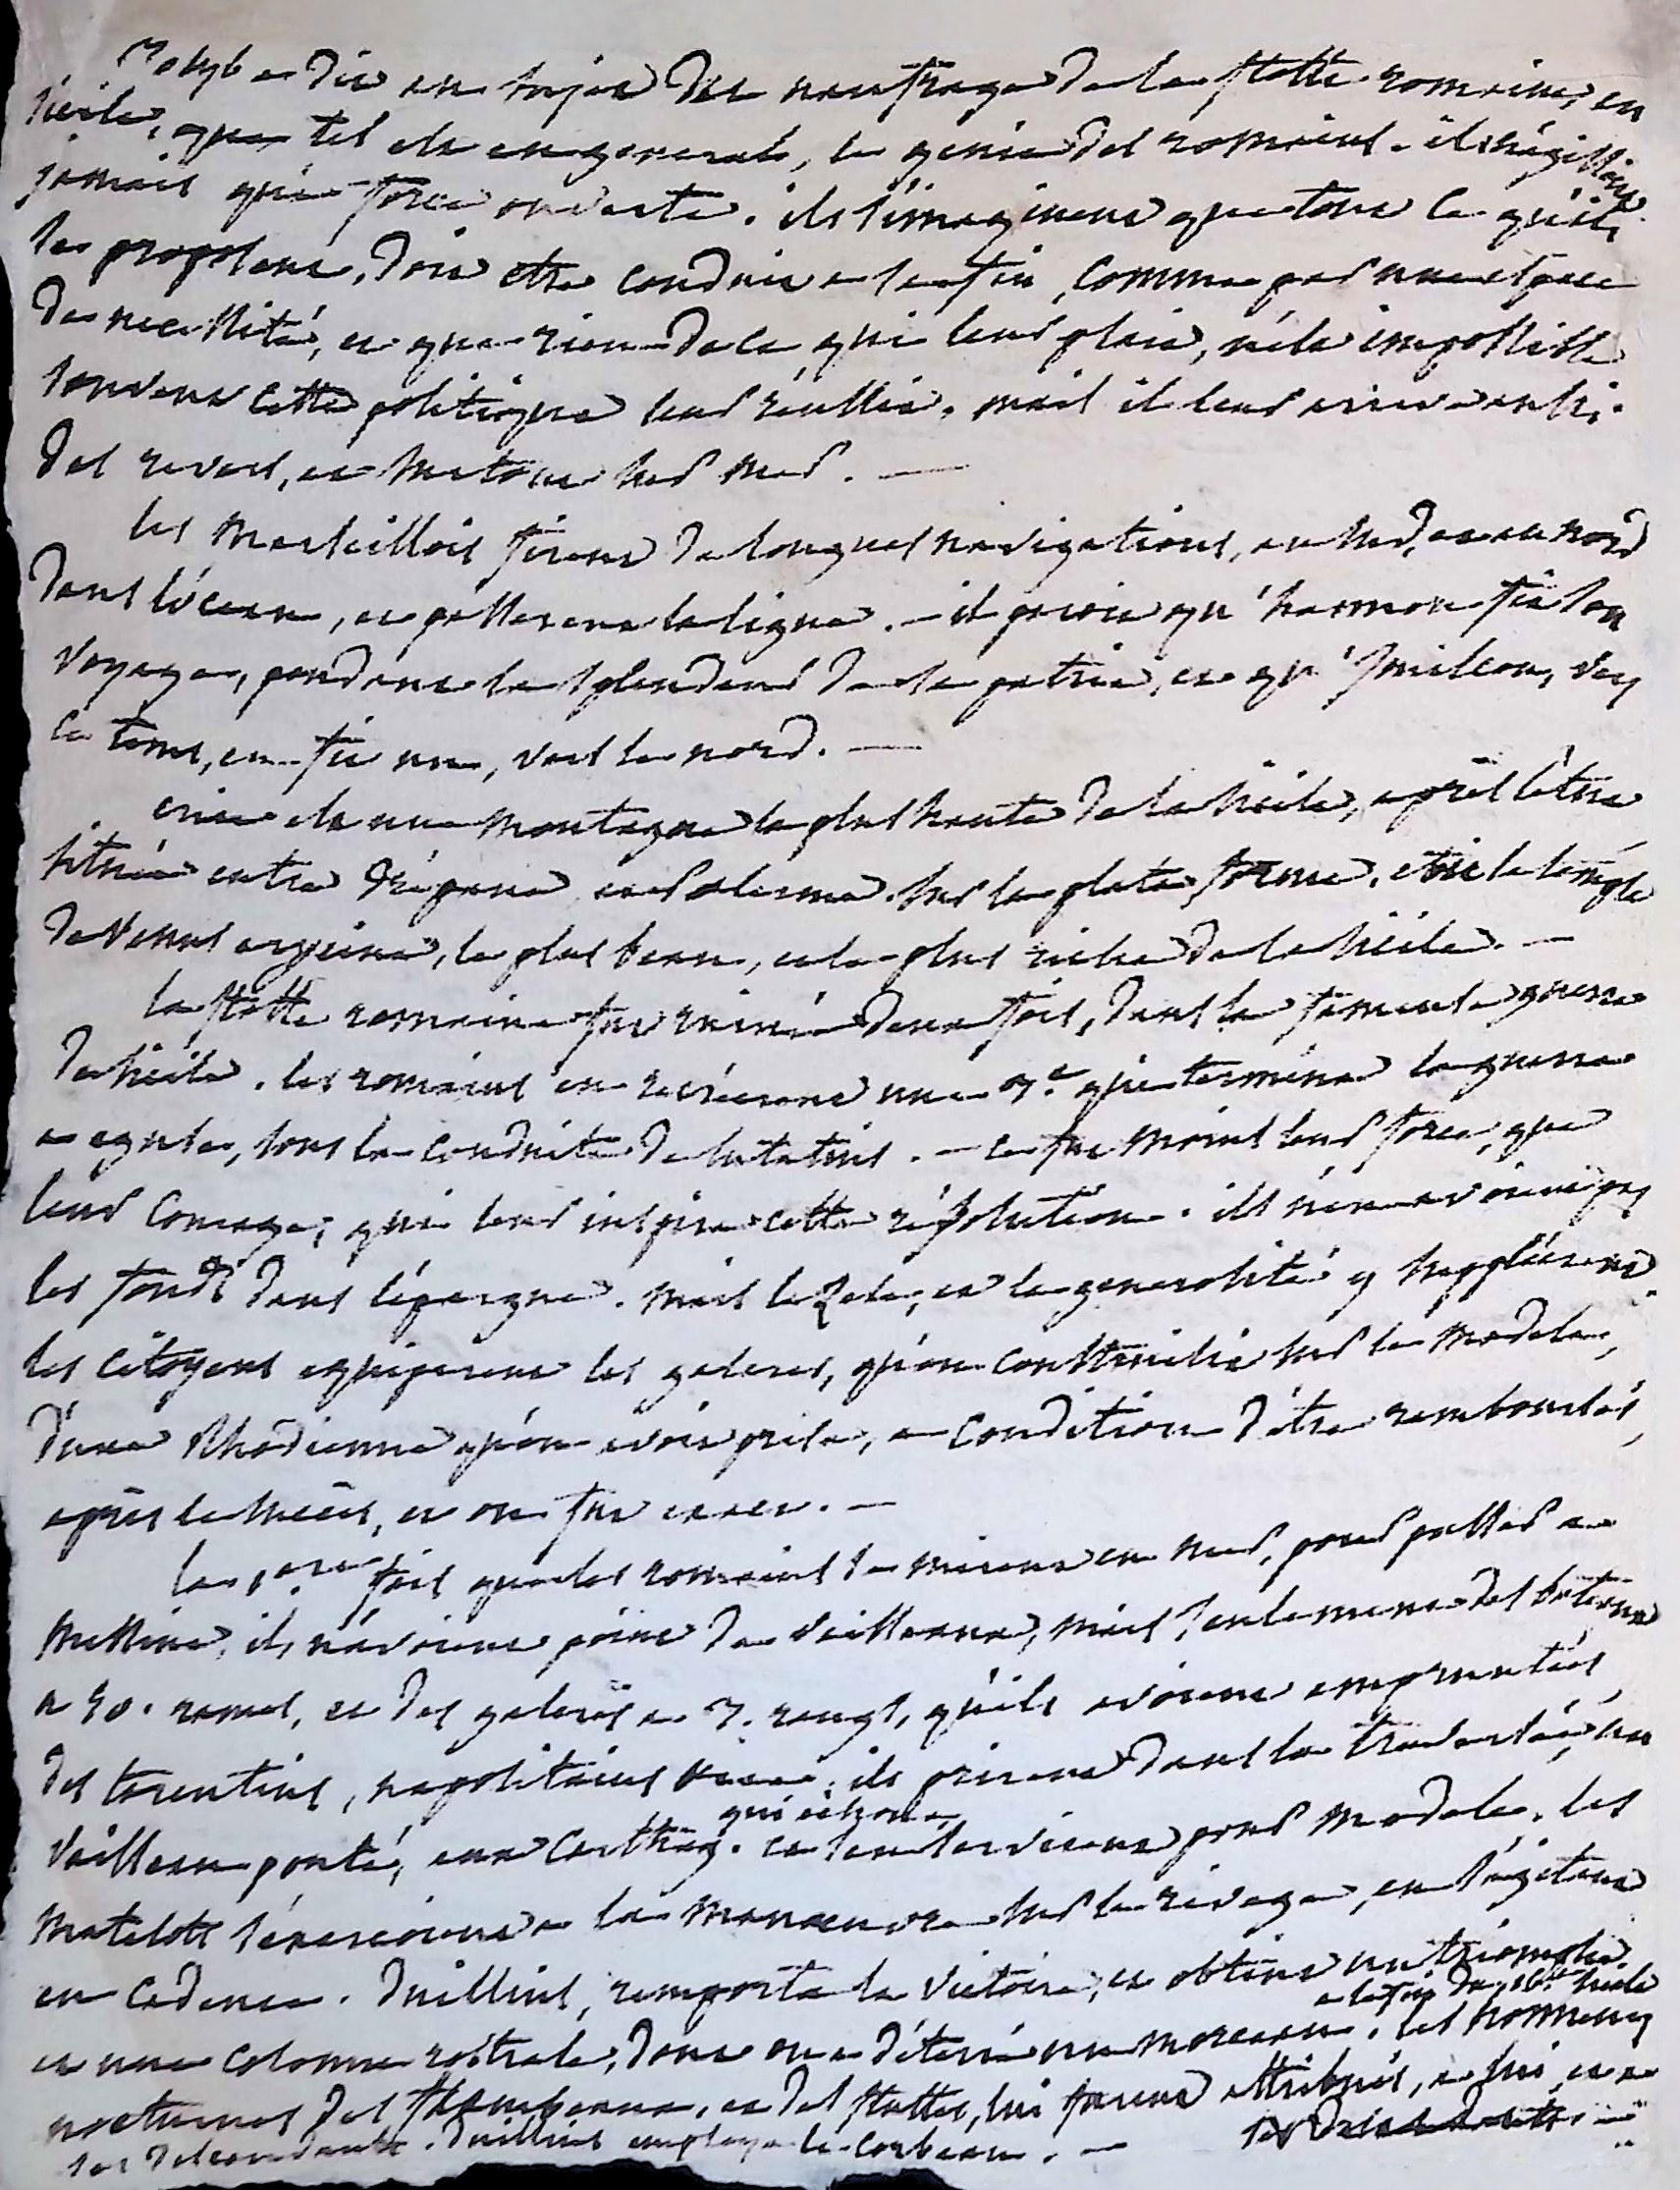 Polyb. a dit au sujet du naufrage de la flotte romaine, en
sicile, que tel est en general, le genie des romains. ils n'agissent
jamais qu'a force ouverte. ils s'imaginent que tout ce qu'ils
se proposent, doit etre conduit a sa fin, comme par une espece
de necessité, et que rien de ce qui leur plait, n'est impossible
souvent cette politique leur réussit. mais il leur arrive aussi
des revers, et surtout sur mer. —
les marseillois firent de longues navigations, au sud, et au nord
dans l'ocean, et passerent la ligne. — il paroit qu'hannon fit son
voyage, pendant la splendeur de sa patrie, et qu'imilcon, vers
ce tems, en fit un, vers le nord. —
erix est une montagne la plus haute de la sicile, après l'etna
située entre drépane et Palerme. sur la plate forme, étoit le temple
de Venus erycine, le plus beau, et le plus riche de la sicile. —
la flotte romaine fut ruinée deux fois, dans la fameuse guerre
de sicile. les romains en recréerent une 3.e qui termina la guerre
a eguse, sous la conduite de lutatius. — ce fut moins leur force, que
leur courage, qui leur inspira cette résolution. ils n'en avoient pas
les fonds dans l'épargne. mais le zele, et la generosité y suppléerent
les citoyens equiperent les galeres, qu'on construisit sur le modele,
d'une Rhodienne qu'on avoit prise, a condition d'etre remboursés,
après le succès, et on fut exact. —
la p.ere fois que les romains se mirent en mer, pour passer a
messine, ils n'avoient point de vaisseaux, mais seulement des bateaux
a 50. rames, et des galeres a 3. rangs, qu'ils avoient empruntées
des tarentins, napolitains ils prirent dans la traversée, un
vaisseau ponté, aux Carthag. qui échoua, et leur servirent pour modele. les
matelots s'exercoient a la manoeuvre sur le rivage, en s'agitant
en cadence. duillius, remporta la victoire, et obtint un triomphe.
et une colonne rostrale, dont on a déterré un morceau. a la fin du 16.e siecle les honneurs
nocturnes des flambeaux, et des flutes, lui furent attribués, a lui, et a
ses descendants. duillius employa le corbeau. —